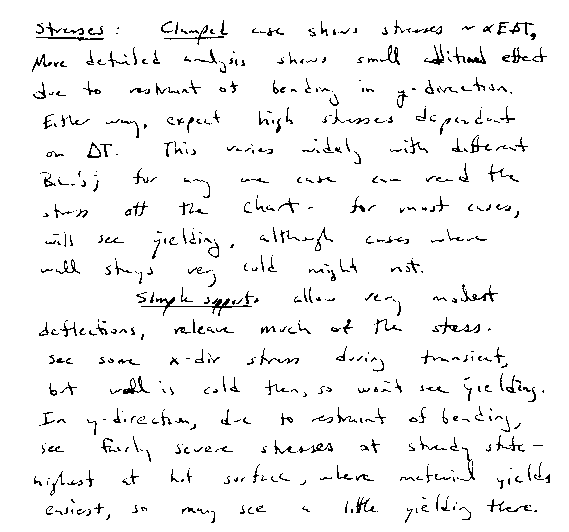 Stresses: Clamped case shows stresses ~ αEΔT,
More detailed analysis shows small additional effect
due to restraint of bending in y-direction.
Either way, expect high stresses dependent
on ΔT. This varies widely with different
B.C.'s; for any one case can read the
stress off the chart - for most cases,
will see yielding, although cases where
wall stays very cold might not.
Simple supports allow very modest
deflections, release much of the stress.
See some x-dir stress during transient,
but wall is cold then, so won't see yielding.
In y-direction, due to restraint of bending,
see fairly severe stresses at steady state -
highest at hot surface, where material yields
easiest, so may see a little yielding there.